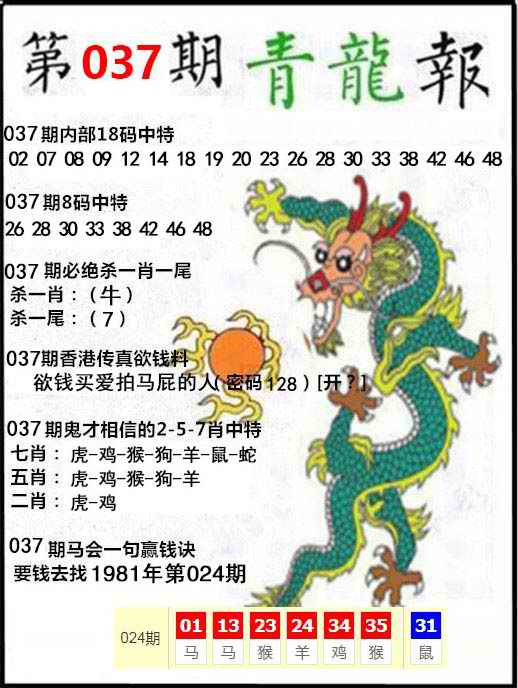 第037期青龍報
037期内部18码中特
02 07 08 09 12 14 18 19 20 23 26 28 30 33 38 42 46 48
037期8码中特
26 28 30 33 38 42 46 48
037 期必绝杀一肖一尾
杀一肖：（牛）
杀一尾：（7）
037期香港传真欲钱料
欲钱买爱拍马屁的人（密码128）[开？]
037期鬼才相信的2-5-7肖中特
七肖：虎-鸡-猴-狗-羊-鼠-蛇
五肖：虎-鸡-猴-狗-羊
二肖：虎-鸡
037期马会一句赢钱诀
要钱去找1981年第024期
024期 01 13 23 24 34 35 31
马 马 猴 羊 鸡 猴 鼠